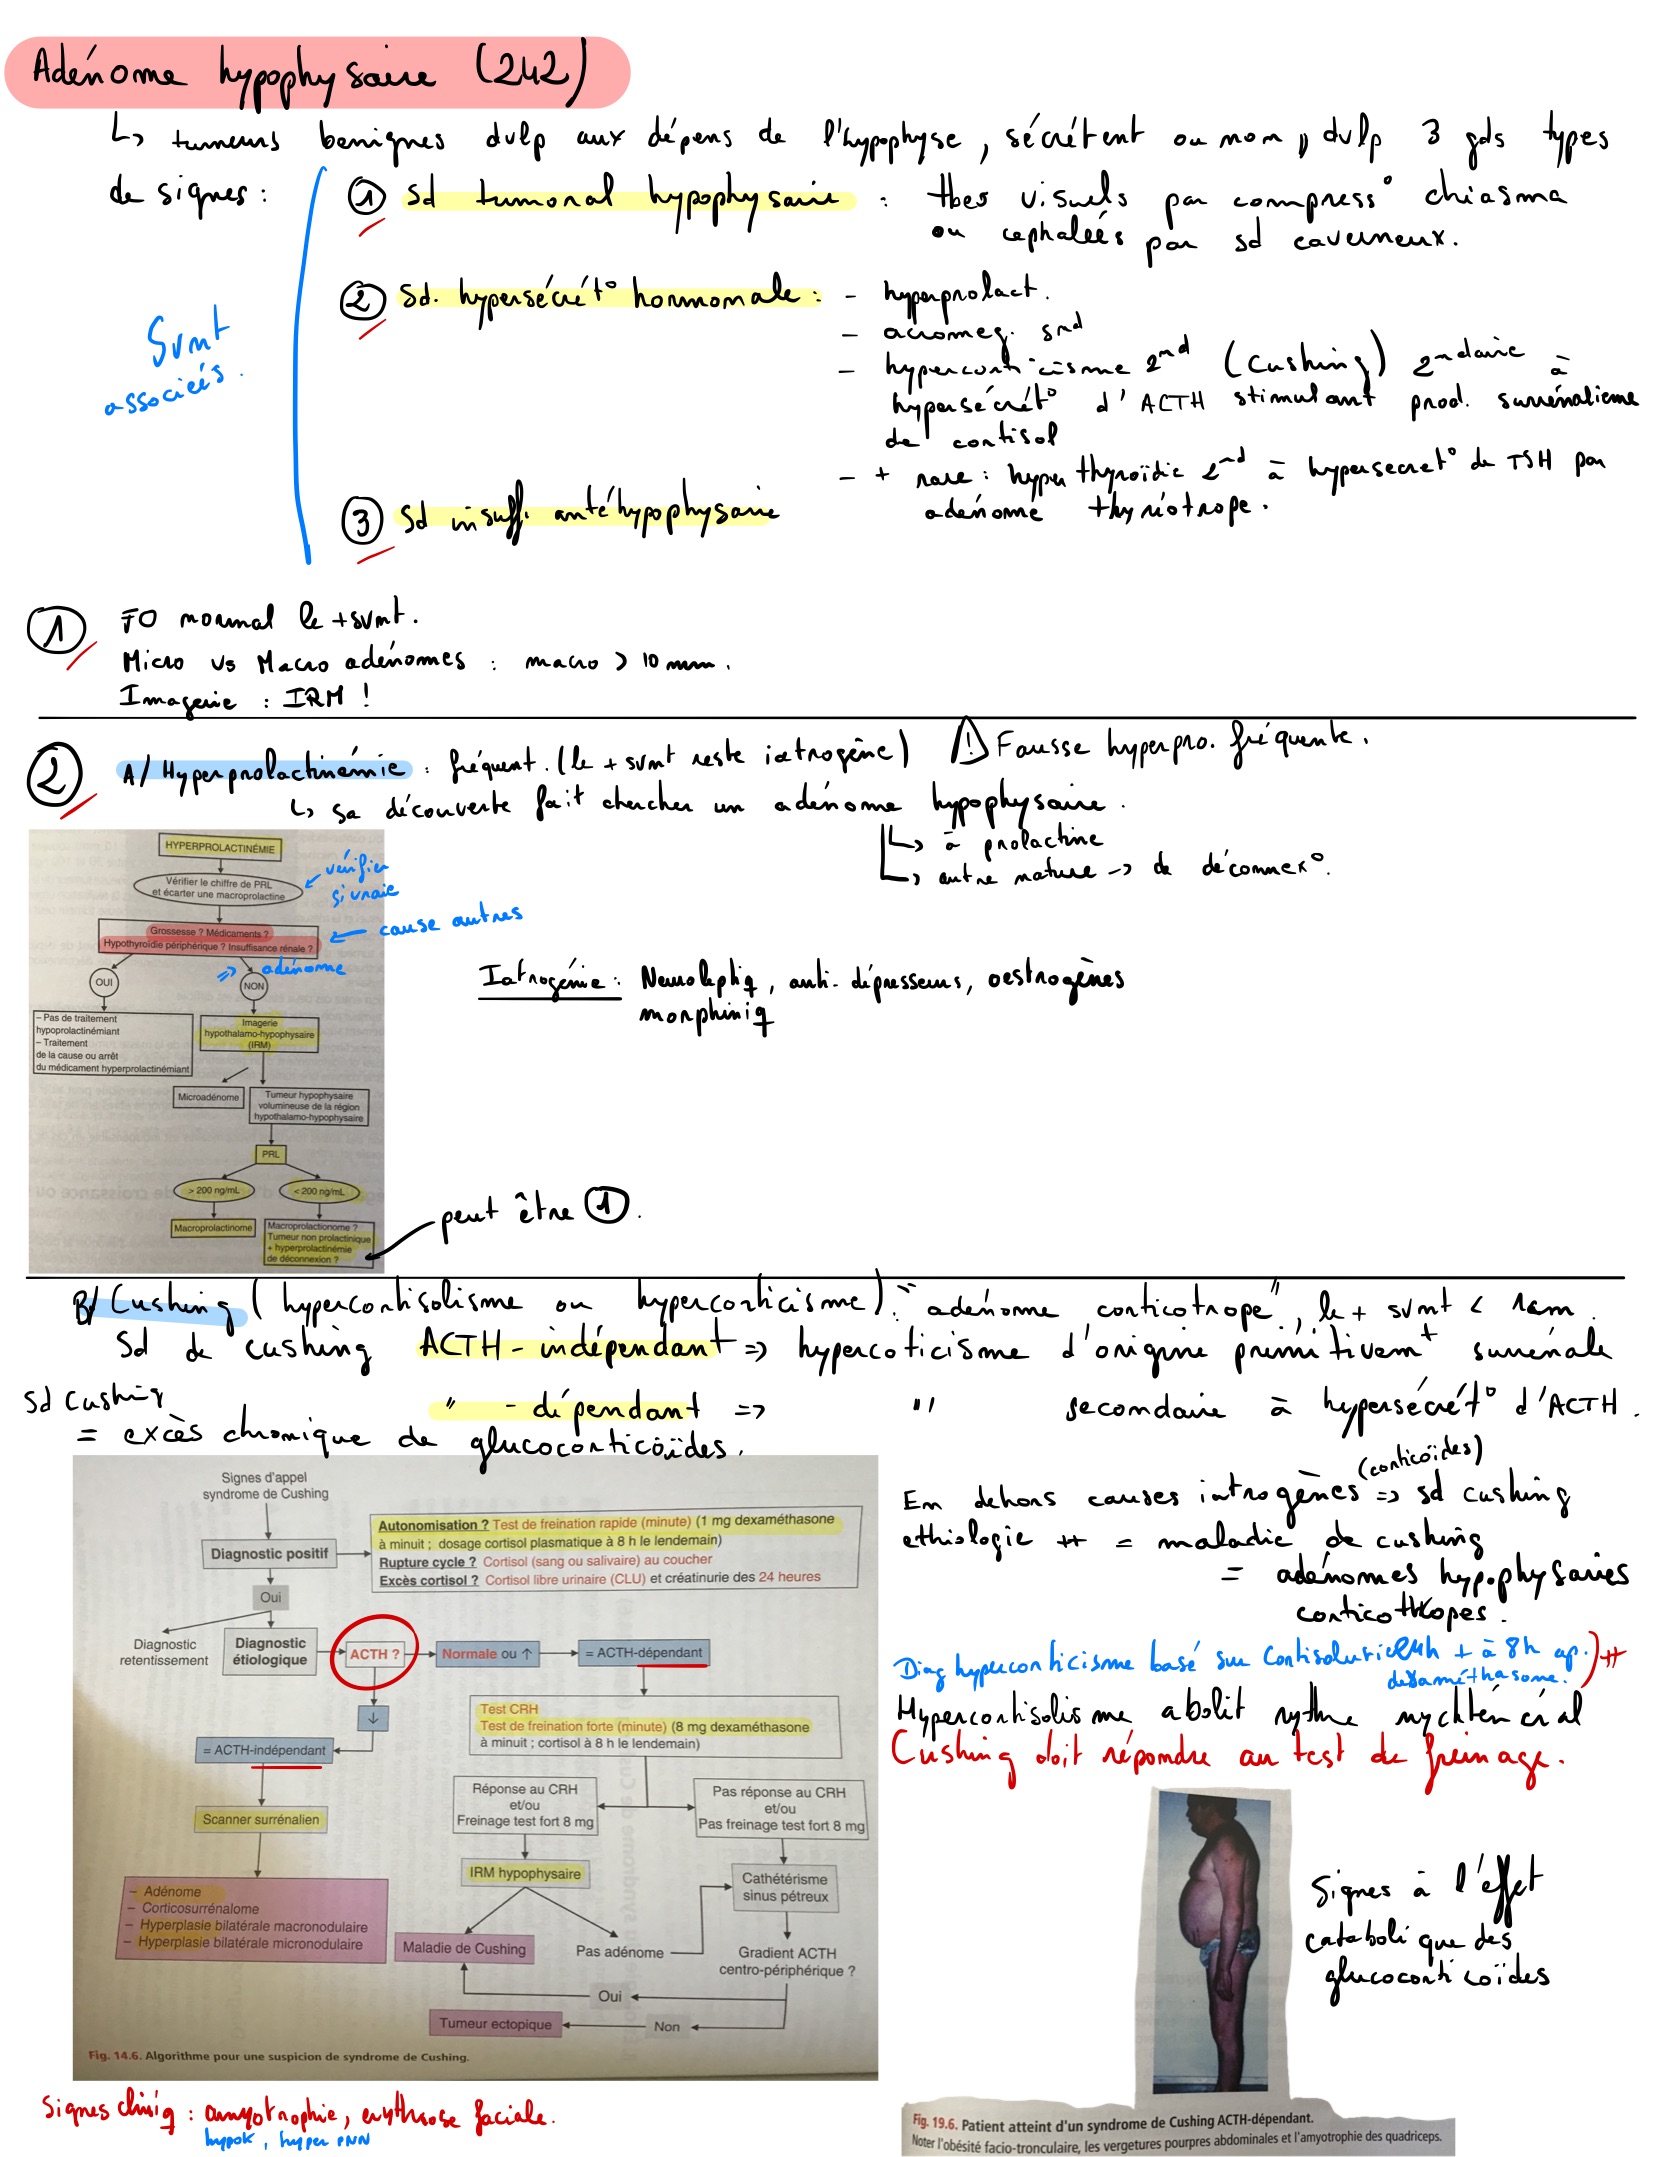 Adénome hypophysaire (242)
↳ tumeurs benignes dvlp aux dépens de l'hypophyse, sécrétent ou non, dvlp 3 gds types
de signes :
① Sd tumoral hypophysaire : tbes visuels par compress° chiasma
ou cephalées par sd caverneux.
② Sd. hypersécrét° hormonale : - hyperprolact.
- acromeg. snd
- hypercorticisme 2nd (Cushing) 2ndaire à
hypersécrét° d'ACTH stimulant prod. surrénalienne
de cortisol
- + rare : hyperthyroïdie 2nd à hypersecret° de TSH par
adénome thyréotrope.
③ Sd insuff. antéhypophysaire
Svmt
associés.
① FO normal le + svmt.
Micro vs Macro adénomes : macro > 10 mm.
Imagerie : IRM !
② A/ Hyperprolactinémie : fréquent. (le + svmt reste iatrogène) ⚠ Fausse hyperpro. fréquente.
↳ sa découverte fait chercher un adénome hypophysaire.
↳ à prolactine
↳ autre nature -> de déconnex°.
HYPERPROLACTINÉMIE
Vérifier le chiffre de PRL
et écarter une macroprolactine
vérifier
si vraie
Grossesse ? Médicaments ?
Hypothyroïdie périphérique ? Insuffisance rénale ?
← cause autres
OUI
NON
=> adénome
– Pas de traitement
hypoprolactinémiant
– Traitement
de la cause ou arrêt
du médicament hyperprolactinémiant
Imagerie
hypothalamo-hypophysaire
(IRM)
Microadénome
Tumeur hypophysaire
volumineuse de la région
hypothalamo-hypophysaire
PRL
> 200 ng/mL
< 200 ng/mL
Macroprolactinome
Macroprolactionome ?
Tumeur non prolactinique
+ hyperprolactinémie
de déconnexion ?
peut être ①.
Iatrogénie : Neuroleptiq, anti-dépresseurs, oestrogènes
morphiniq
B/ Cushing (hypercortisolisme ou hypercorticisme) : "adénome corticotrope", le + svmt < 1cm.
Sd de cushing ACTH-indépendant => hypercoticisme d'origine primitivemt surrénale
" - dépendant => " secondaire à hypersécrét° d'ACTH.
Sd Cushing
= excès chronique de glucocorticoïdes.
Signes d'appel
syndrome de Cushing
Diagnostic positif
Autonomisation ? Test de freination rapide (minute) (1 mg dexaméthasone
à minuit ; dosage cortisol plasmatique à 8 h le lendemain)
Rupture cycle ? Cortisol (sang ou salivaire) au coucher
Excès cortisol ? Cortisol libre urinaire (CLU) et créatinurie des 24 heures
Oui
Diagnostic
retentissement
Diagnostic
étiologique
ACTH ?
Normale ou ↑
= ACTH-dépendant
↓
= ACTH-indépendant
Test CRH
Test de freination forte (minute) (8 mg dexaméthasone
à minuit ; cortisol à 8 h le lendemain)
Scanner surrénalien
Réponse au CRH
et/ou
Freinage test fort 8 mg
Pas réponse au CRH
et/ou
Pas freinage test fort 8 mg
IRM hypophysaire
Cathétérisme
sinus pétreux
– Adénome
– Corticosurrénalome
– Hyperplasie bilatérale macronodulaire
– Hyperplasie bilatérale micronodulaire
Maladie de Cushing
Pas adénome
Gradient ACTH
centro-périphérique ?
Oui
Tumeur ectopique
Non
Fig. 14.6. Algorithme pour une suspicion de syndrome de Cushing.
En dehors causes iatrogènes (corticoïdes) => sd cushing
ethiologie ++ = maladie de cushing
= adénomes hypophysaires
corticotropes.
Diag hypercorticisme basé sur Cortisolurie 24h + à 8h ap. ) ++
dexaméthasone.
Hypercortisolisme abolit rythme nychtéméral
Cushing doit répondre au test de freinage.
Signes à l'effet
catabolique des
glucocorticoïdes
Signes cliniq : amyotrophie, erythrose faciale.
hypoK, hyper PNN
Fig. 19.6. Patient atteint d'un syndrome de Cushing ACTH-dépendant.
Noter l'obésité facio-tronculaire, les vergetures pourpres abdominales et l'amyotrophie des quadriceps.